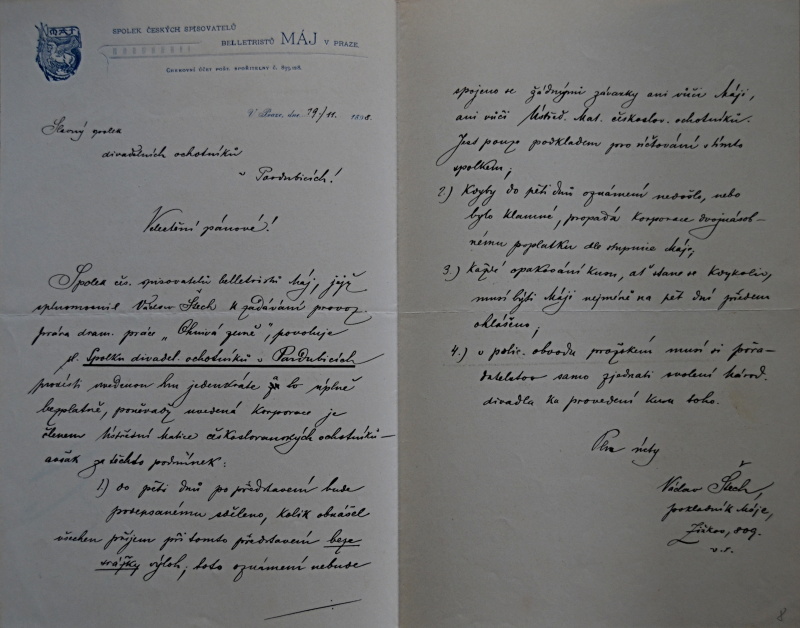 MÁJ
SPOLEK ČESKÝCH SPISOVATELŮ
BELLETRISTŮ MÁJ V PRAZE.
V Praze, dne 19/11. 1898.
Slavný spolek
divadelních ochotníků
v Pardubicích!
Velectění pánové!
Spolek čes. spisovatelů belletristů Máj, jejž
splnomocnil Václav Štech k zadávání provoz.
práva dram. práce „Ohnivá země", povoluje
sl. Spolku divadel. ochotníků v Pardubicích
provésti uvedenou hru jedenkráte a to úplně
bezplatně, poněvadž uvedená korporace je
členem Ústřední Matice českoslovanských ochotníků –
avšak za těchto podmínek:
1.) do pěti dnů po představení bude
podepsanému sděleno, kolik obnášel
všechen příjem při tomto představení beze
srážky výloh; toto oznámení nebude
spojeno se žádnými závazky ani vůči Máji,
ani vůči Ústřed. Mat. českoslov. ochotníků.
Jest pouze podkladem pro účtování s tímto
spolkem;
2.) Kdyby do pěti dnů oznámení nedošlo, nebo
bylo klamné, propadá korporace dvojnásob-
nému poplatku dle stupnice Máje;
3.) Každé opakování kusu, ať stane se kdykoliv,
musí býti Máji nejméně na pět dní předem
ohlášeno;
4.) v polic. obvodu pražském musí si pořa-
datelstvo samo zjednati svolení Národ.
divadla ku provedení kusu toho.
Plné úcty
Václav Štech,
pokladník Máje,
Žižkov, 809.
8